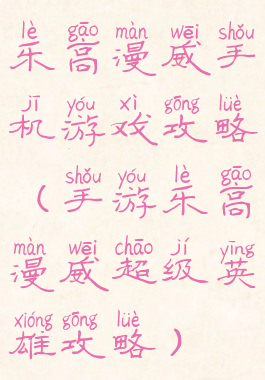 lè gāo màn wēi shǒu
乐高漫威手
jī yóu xì gōng lüè
机游戏攻略
shǒu yóu lè gāo
(手游乐高
màn wēi chāo jí yīng
漫威超级英
xióng gōng lüè
雄攻略)